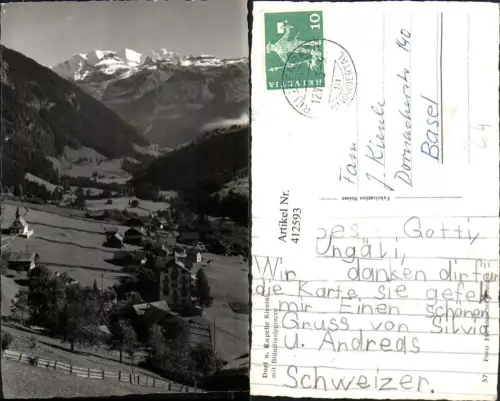 10
HELVETIA
Fam.
J. Kienle
Dornacherstr 140
Basel
64
Fabrication Suisse
Artikel Nr.
412593
es Gotti
ngäli,
Wir danken dir für
die Karte, sie gefel
mir Einen schönen
Gruss von Silvia
u. Andreas
Schweizer.
Dorf u. Kapelle Kiental
mit Blümlisalpgruppe
57
Foto